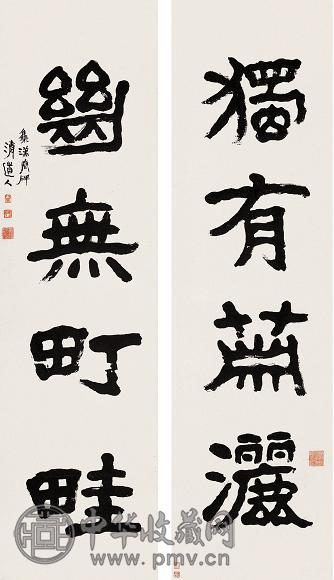 獨有蕭灑
絕無町畦
集漢碑
清道人
中华收藏网
www.pmv.cn